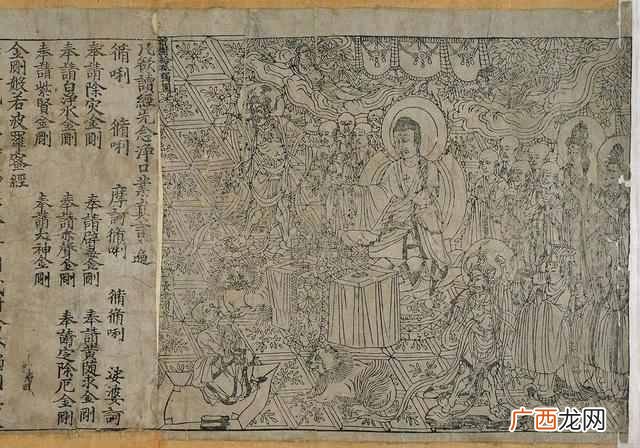 凡欲讀經先念淨口業真言一遍
脩唎 脩唎 摩訶脩唎 脩脩唎 娑婆訶
奉請除灾金剛 奉請辟毒金剛 奉請黄随求金剛
奉請白淨水金剛 奉請赤聲金剛 奉請定除厄金剛
奉請紫賢金剛 奉請大神金剛
金剛般若波羅蜜經
广西龙网